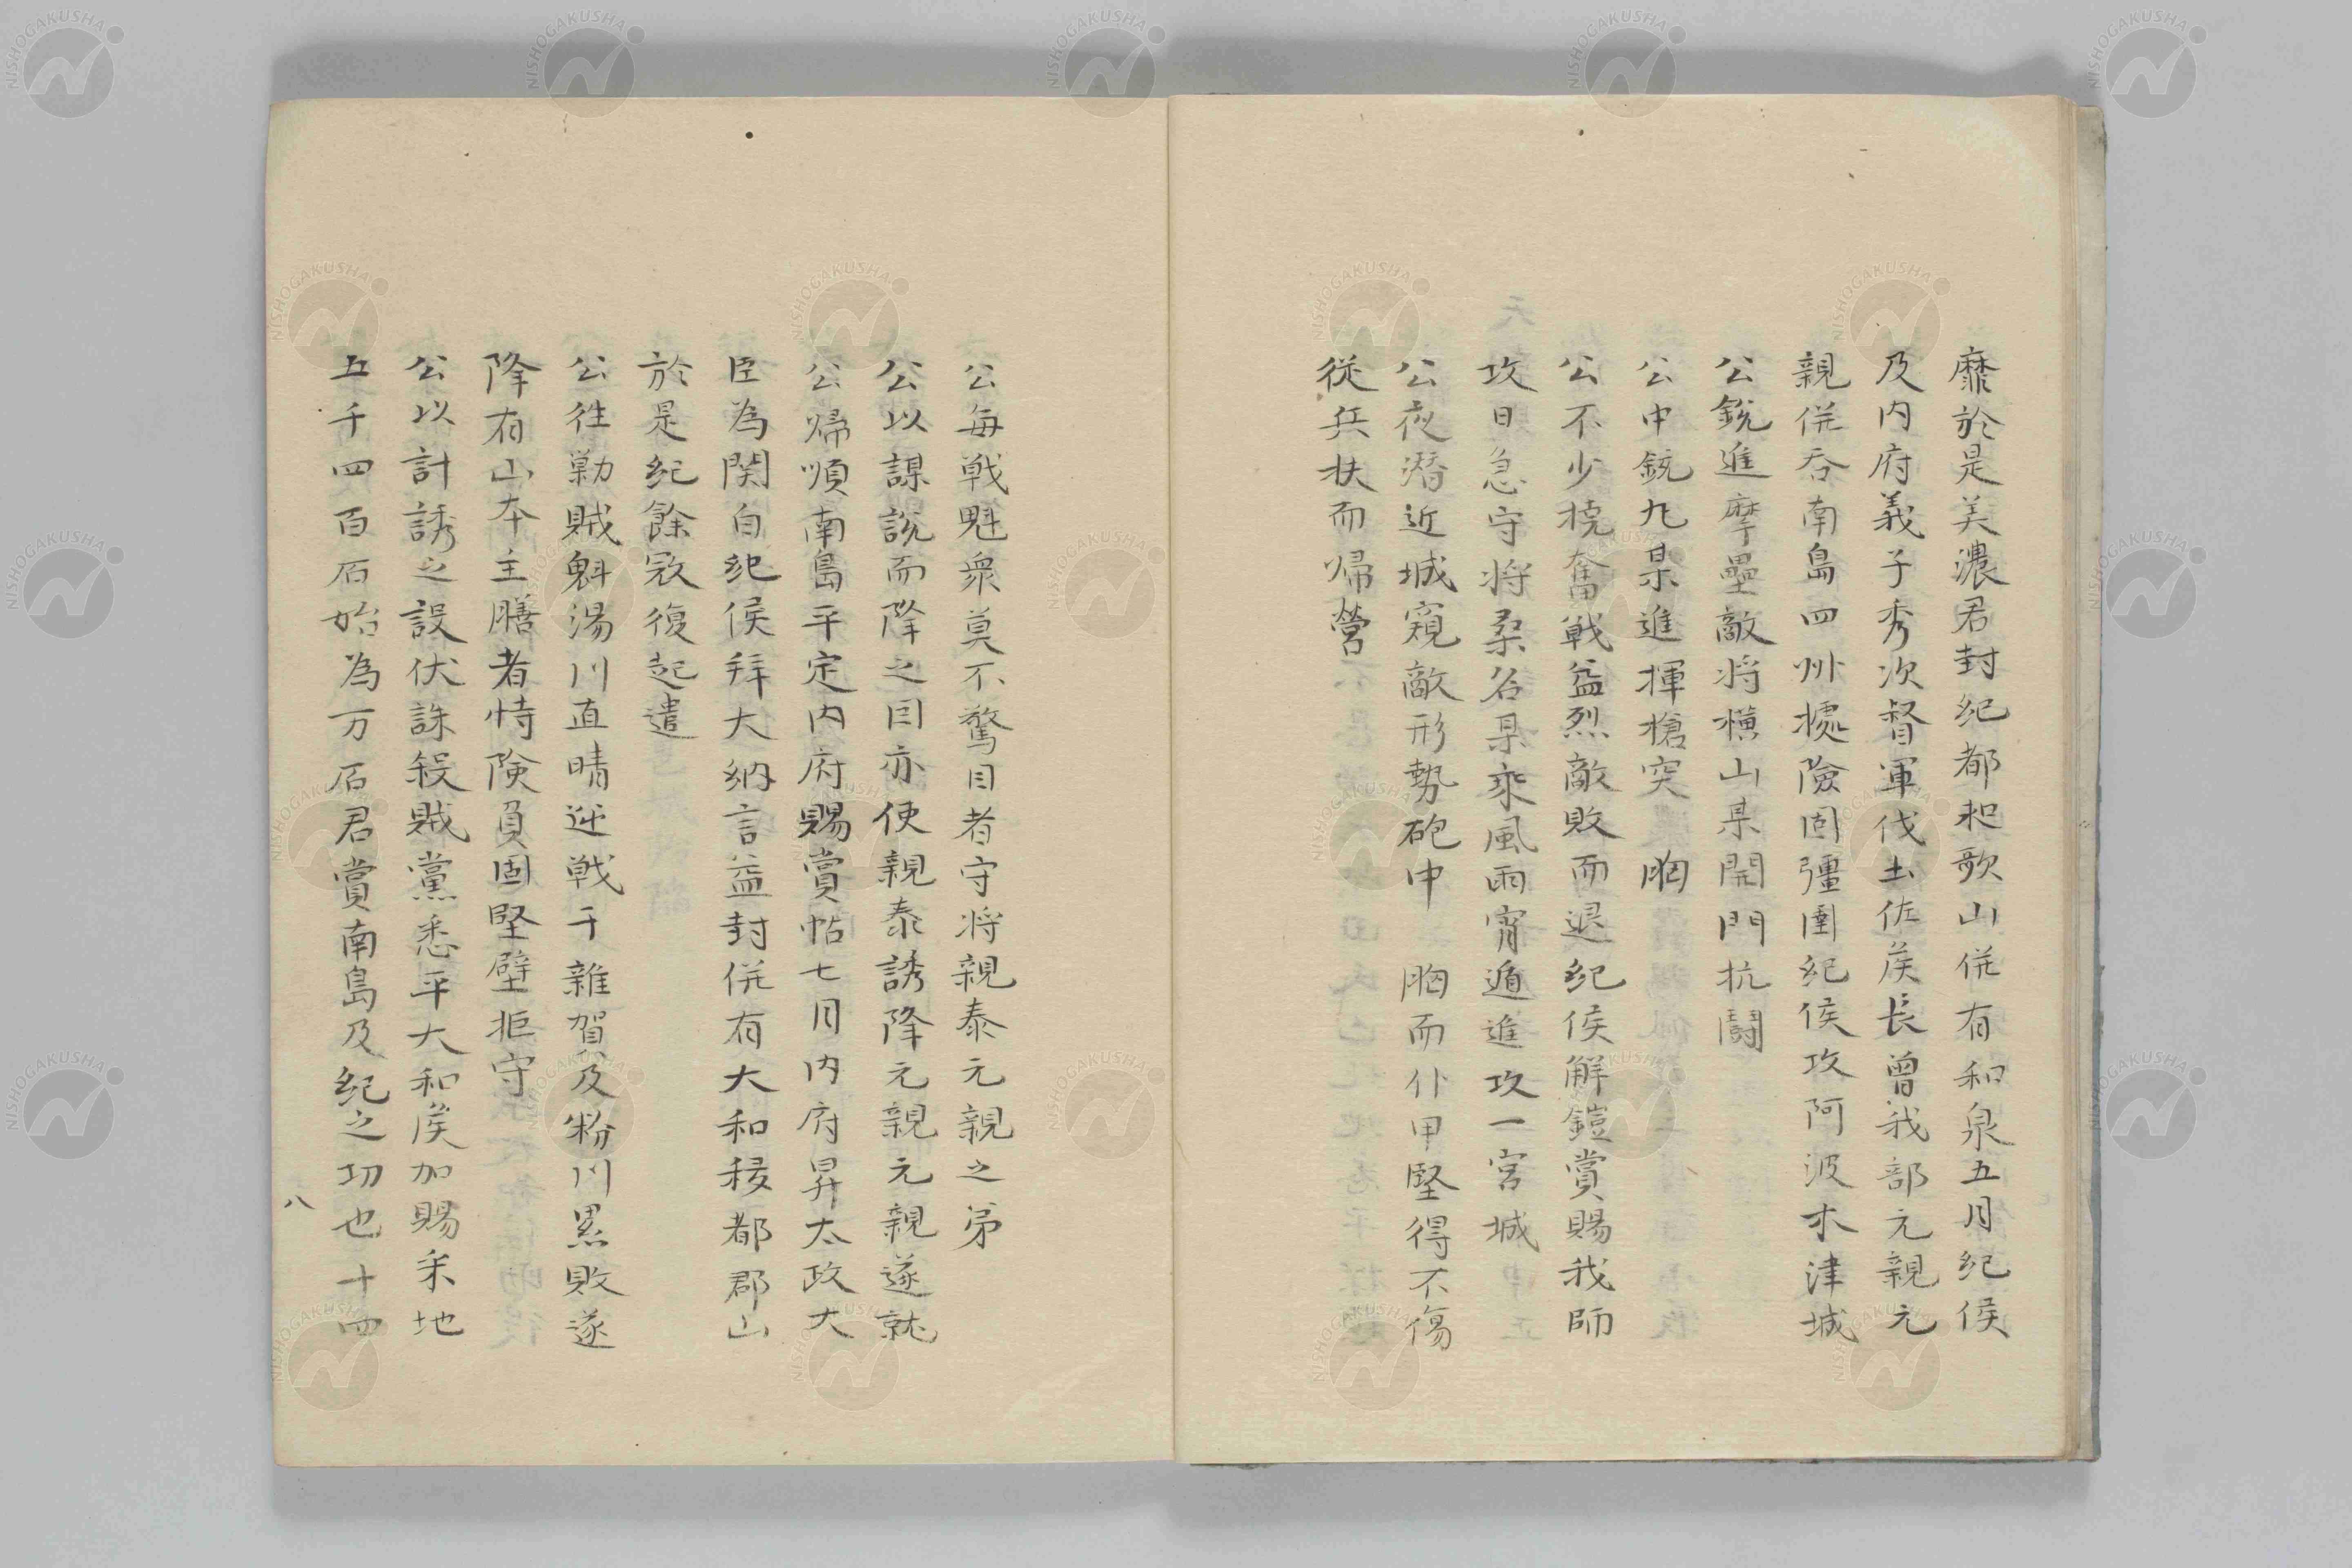 靡於是美濃君封紀都和歌山併有和泉五月紀侯
及内府義子秀次督軍伐土佐侯長曽我部元親元
親併呑南島四州據險固彊圉紀侯攻阿波木津城
公銃進摩壘敵将横山某開門抗闘
公中銃丸杲進揮槍突 胸
公不少撓奮戦益烈敵敗而退紀侯解鎧賞賜我師
攻日急守将桑名某乘風雨宵遁進攻一宮城
公夜潜近城窺敵形勢砲中 胸而仆甲堅得不傷
従兵扶而帰營
公毎戦魁衆莫不驚目者守将親泰元親之弟
公以謀説而降之因亦使親泰誘降元親元親遂就
公帰順南島平定内府賜賞帖七月内府昇太政大
臣為関白紀侯拜大納言益封併有大和移都郡山
於是紀餘冦復起遣
公往勦賊魁湯川直晴逆戦于雜賀及粉川累敗遂
降有山本主膳者恃険負固堅壁拒守
公以計誘之設伏誅殺賊黨悉平大和侯加賜采地
五千四百石始為万石君賞南島及紀之功也十四
八
NISHOGAKUSHA